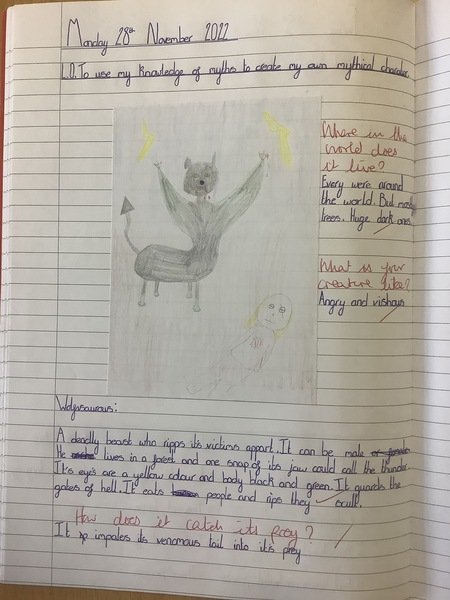 Monday 28th November 2022
L.O. To use my knowledge of myths to create my own mythical character.
Where in the
world does
it live?
Every were around
the world. But mostly
trees. Huge dark ones
What is your
creature like?
Angry and vishous
Wolysaurous:
A deadly beast who ripps it's victims appart. It can be male
He lives in a forest and one snap of its jaw could call the thunder.
It's eye's are a yellow colour and body black and green. It guards the
gates of hell. It eats people and rips they
How does it catch its prey?
It impales its venomous tail into it's prey